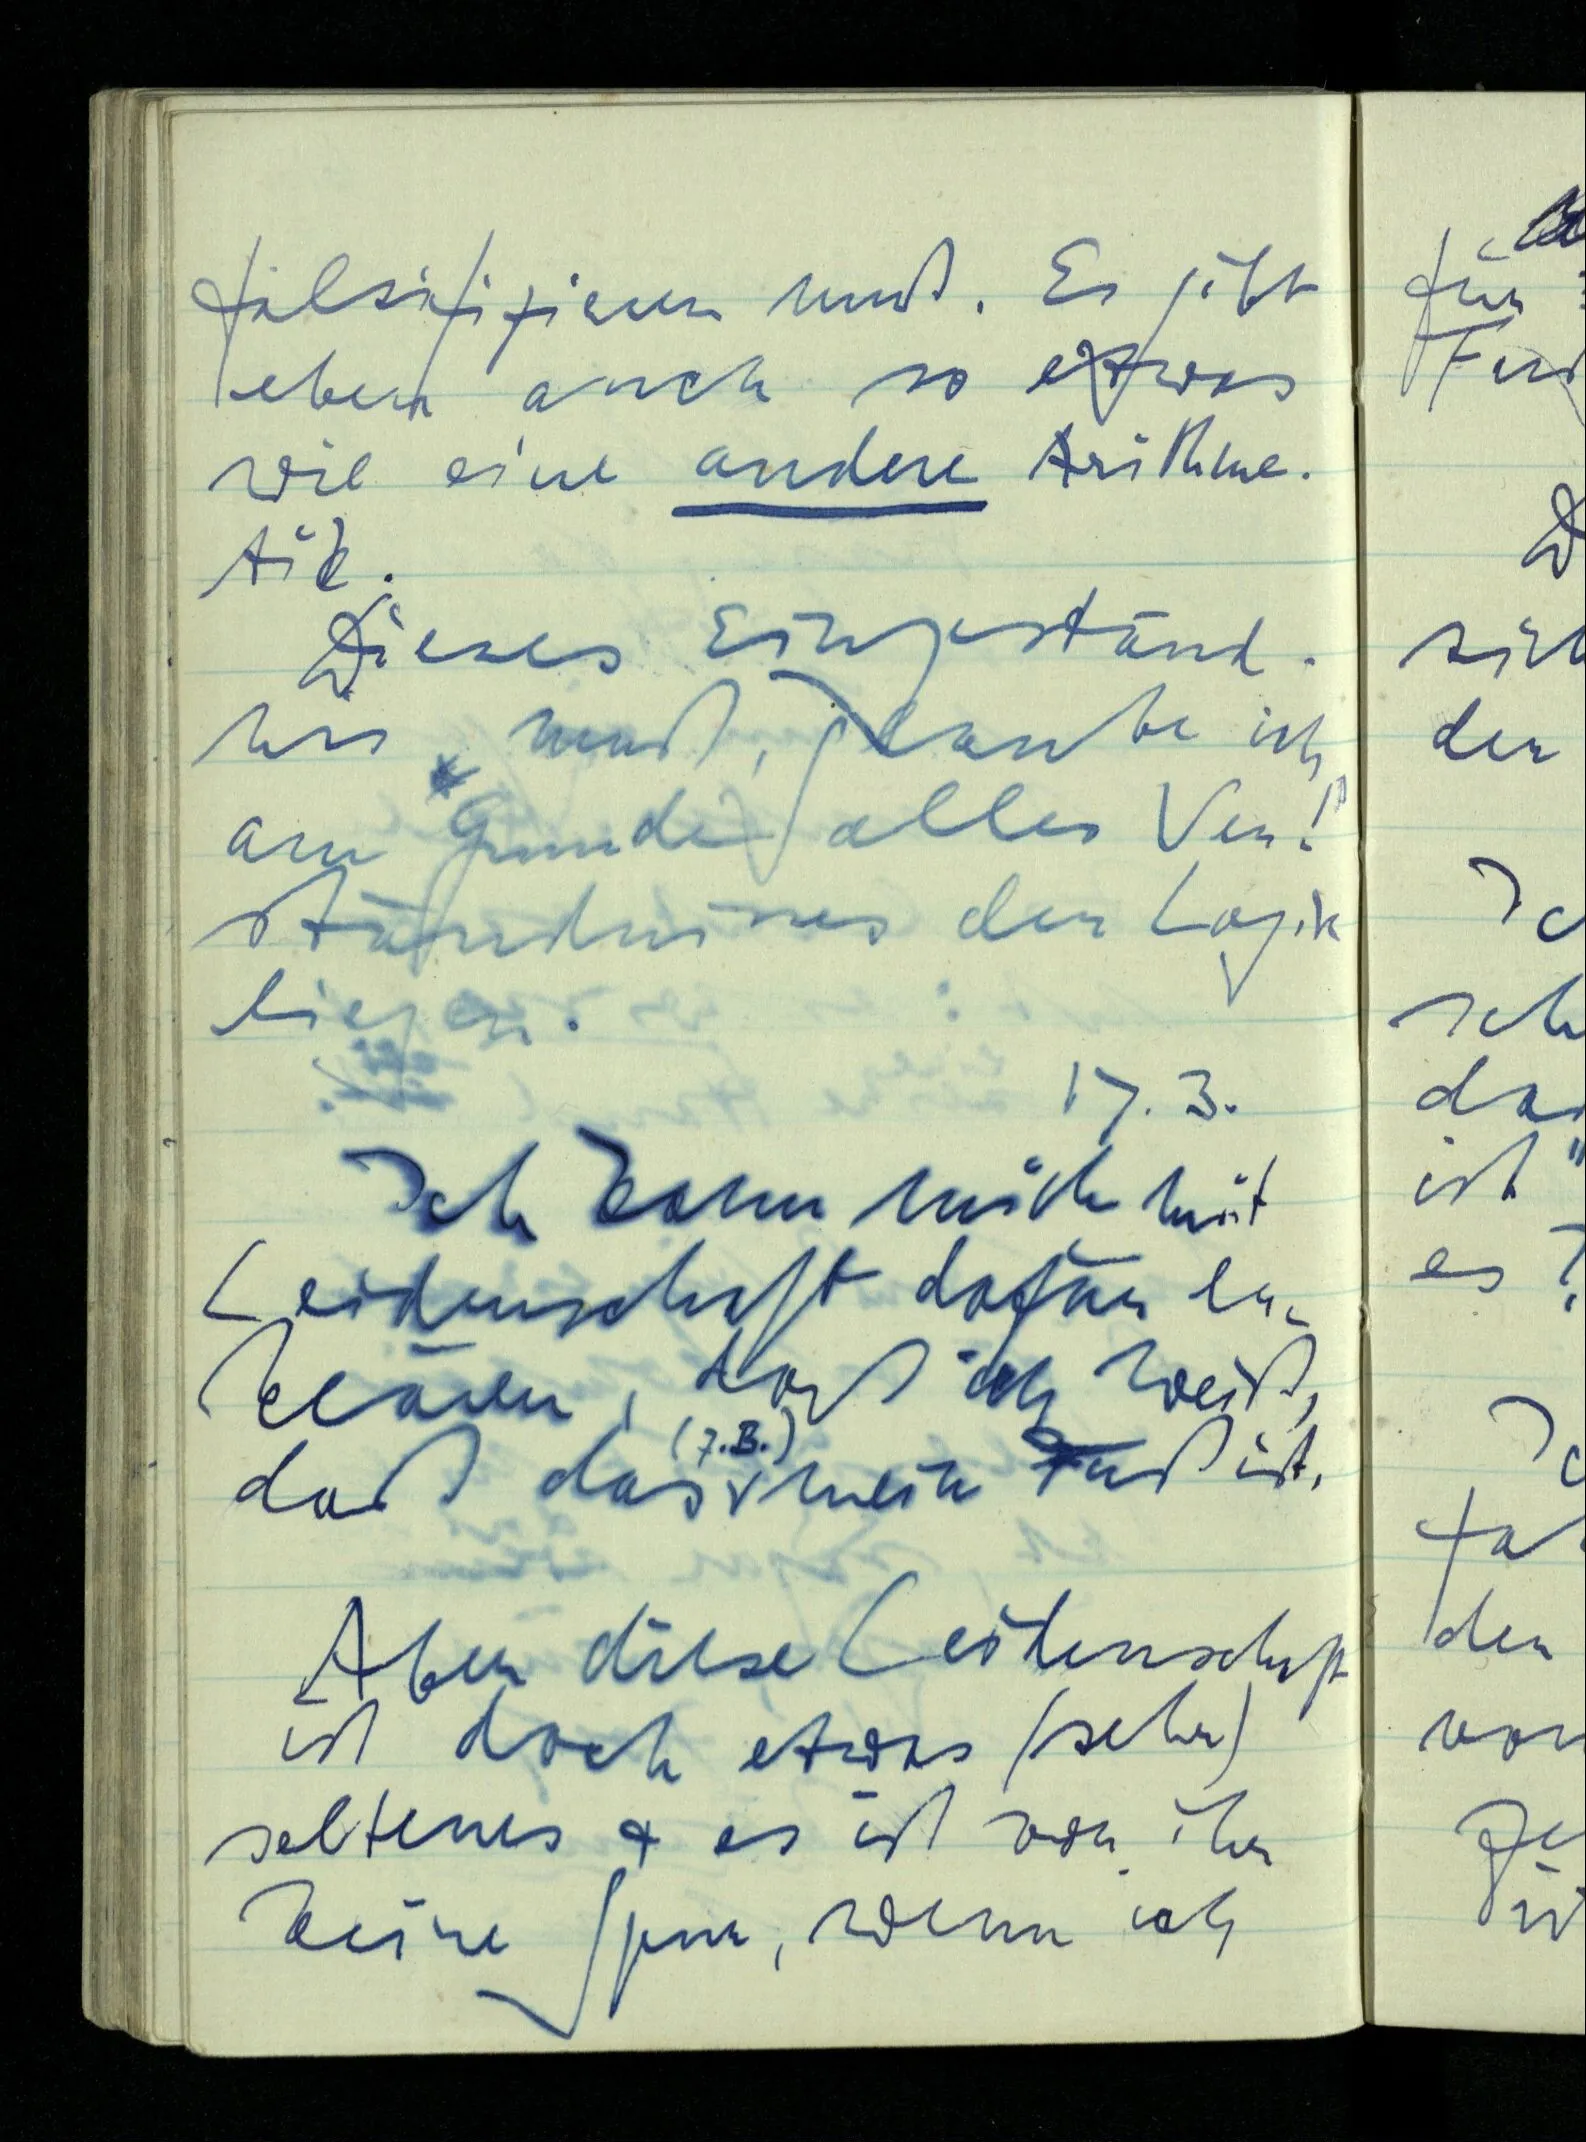 falsifizieren muß. Es gibt
eben auch so etwas
wie eine andere Arithme-
tik.
Dieses Eingeständ-
nis muß, glaube ich
am Grunde alles Ver-
ständnisses der Logik
liegen.
17.3.
Ich kann mich mit
Leidenschaft dafür er-
klären, daß ich weiß,
daß das (z.B.) mein Fuß ist.
Aber diese Leidenschaft
ist doch etwas (sehr)
seltenes & es ist von ihr
keine Spur, wenn ich
für
Fuß
sich
der
Ich
sch
daß
ist "
es ?
Ic
fa
den
von
ge